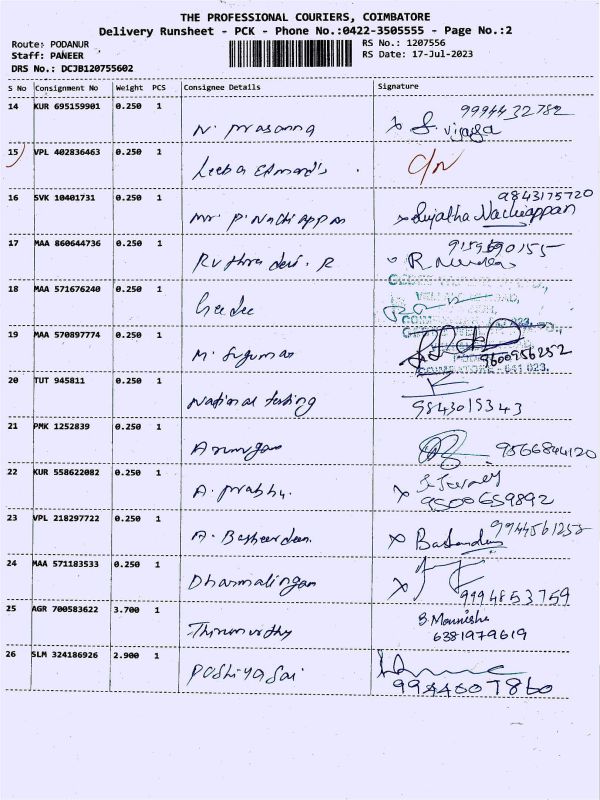 THE PROFESSIONAL COURIERS, COIMBATORE
Delivery Runsheet - PCK - Phone No.:0422-3505555 - Page No.:2
Route: PODANUR
Staff: PANEER
DRS No.: DCJB120755602
RS No.: 1207556
RS Date: 17-Jul-2023
S No Consignment No Weight PCS Consignee Details Signature
14 KUR 695159901 0.250 1
N. Prasanna
9994432782
x S. vijaya
15 VPL 402836463 0.250 1
Leeba Edmard's
C/N
16 SVK 10401731 0.250 1
Mr. P. Nachiappan
9843175720
x Sujatha Nachiappan
17 MAA 860644736 0.250 1
Ruthra devi. R
R
18 MAA 571676240 0.250 1
Geedee
19 MAA 570897774 0.250 1
M. Sugumar
9600956252
COIMBATORE - 641 023.
20 TUT 945811 0.250 1
National testing
9843015343
21 PMK 1252839 0.250 1
Arumugam
9566844120
22 KUR 558622082 0.250 1
A. Prabhu.
x
9500659892
23 VPL 218297722 0.250 1
A. Basheerdeen.
9944561255
x
24 MAA 571183533 0.250 1
Dharmalingam
x
9994853759
25 AGR 700583622 3.700 1
Thirumurthy
S. Mounisha
6381979619
26 SLM 324186926 2.900 1
Poshiya Sai
9944607860